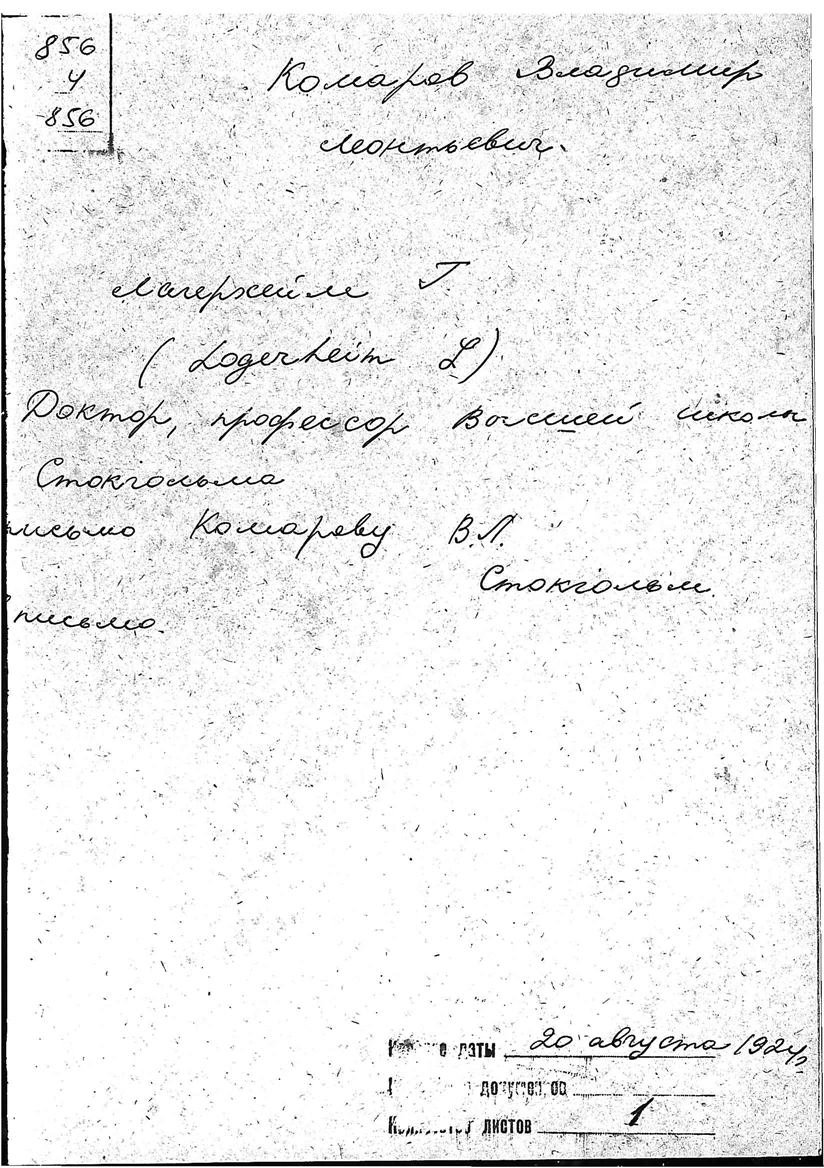 856
4
856
Комаров Владимир
Леонтьевич.
Лагерхейм Г.
(Logerheim L)
Доктор, профессор Высшей школы
Стокгольма
письмо Комарову В.Л.
Стокгольм.
письмо.
даты 20 августа 1924г
документов
листов 1